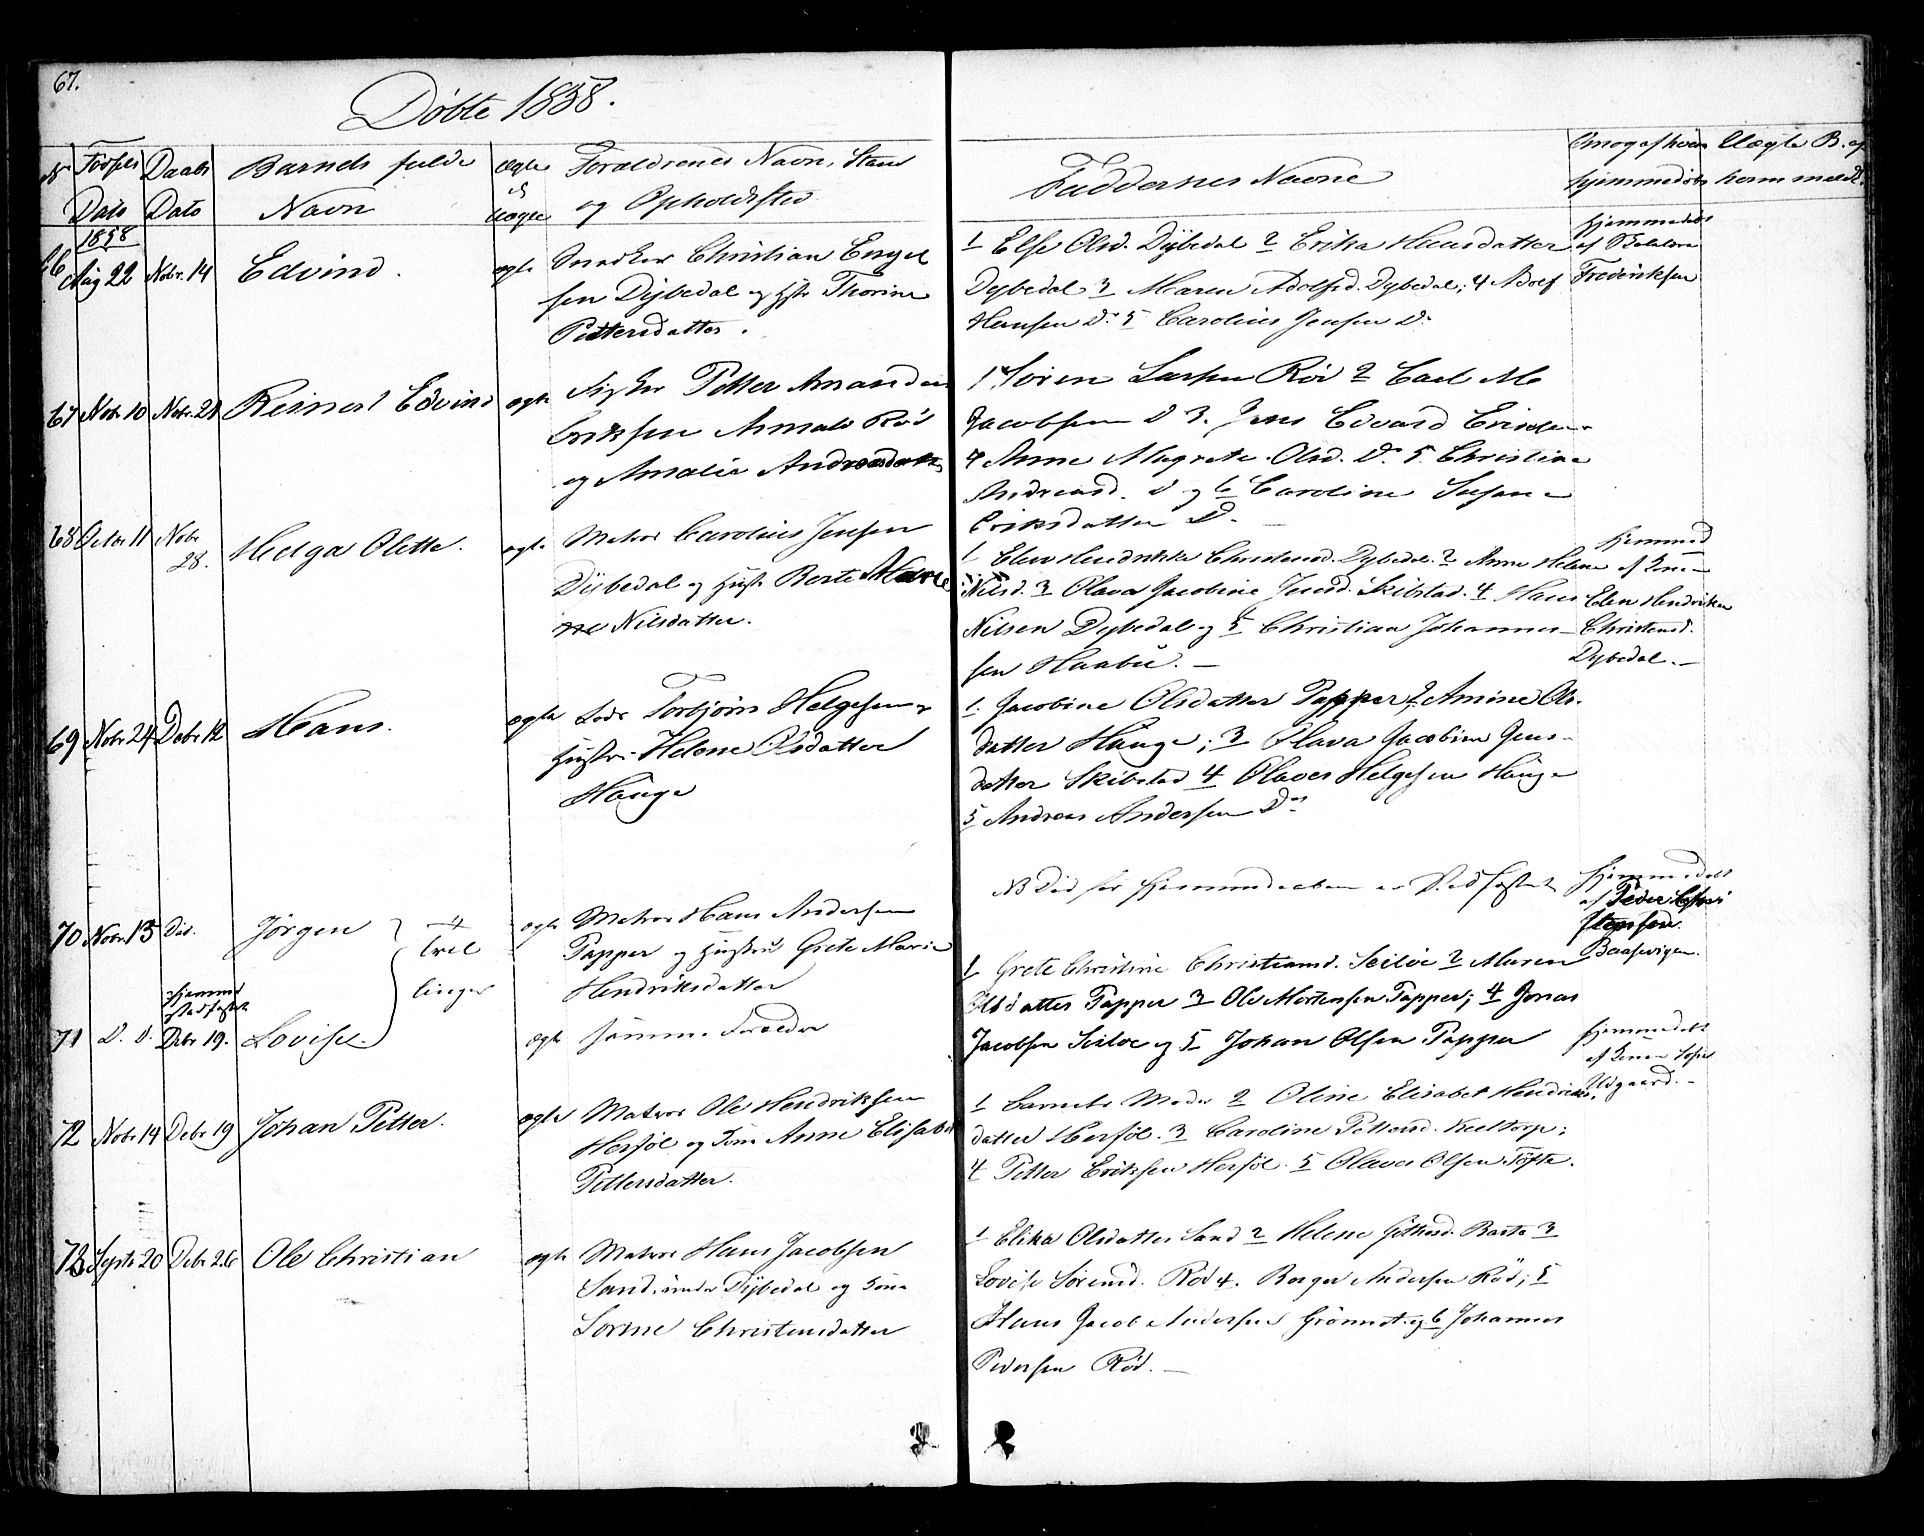 67.
Döbte 1858.
No Fødsels Dato Daabs Dato Barnets fulde Navn Ægte el. Uægte Foraldrenes Navn, Stand og Opholdssted
Faddernes Navne
hjemmedøbt Uægte B. af
1858
66 Aug 22 Nobr. 14 Edvind. ægte Snedker Christian Engel
sen Dÿbedal og Hstr Thorine
Pettersdatter.
1 Else Olsd. Dÿbedal 2 Erika Hansdatter
Dybedal 3 Maren Adolfsd. Dybedal; 4 Adolf
Hansen Do 5 Carolius Jensen Do
hjemmedøbt
af
Frederiksen
67 Nobr 10 Nobr. 28 Reinert Edvind ægte Fisker Petter Amandus
Eriksen Rød
og Amalia Andreasdatter
1 Sören Larsen Röd 2 Carl M
Jacobsen D 3. Jens Edvard Eriksen
4 Anne Magrete Olsd. Do 5. Christine
Andreasd. D og 6 Caroline Susane
Eriksdatter D.
68 Octbr 11 Nobr 28. Helga Olette. ægte Matros Carolius Jensen
Dÿbedal og Hustr Berte Marie
Nilsdatter.
1 Elen Hendrikke Christensd. Dybedal. 2 Anne Helene
Nilsd. 3 Olava Jacobine Jensd. Skibstad. 4 Hans
Nilsen Dybedal og 5 Christian Johannes
sen Haabu.
hjemmed
af Konen
Elen Hendrikke
Christensd.
Dybedal.
69 Nobr 24 Debr 12 Hans. ægte Lods Torbjörn Helgesen og
Hustr. Helene Olsdatter
Hauge
1. Jacobine Olsdatter Papper, 2 Amine Ols-
datter Hauge; 3 Olava Jacobine Jens-
datter Skibstad 4 Olaves Helgesen Hauge
5 Andreas Andersen Do
NB Did før hjemmedaaben er Stadfæstet
70 Nobr 13 Död. Jørgen Tvil
linger
ægte Matros Hans Andersen
Papper og Hustru Grete Marie
Hendriksdatter
hjemmedøbt
af Peder
71 D. D. hjemmed stadfæstet Debr 19. Lovise. ægte samme Foraldre
1 Grete Christine Christiansd. Seiløe 2 Maren
Olsdatter Papper 3 Ole Mortensen Papper; 4 Jonas
Jacobsen Seiløe og 5 Johan Olsen Papper
hjemmedøbt
af Konen Sofie
Udgaard.
72 Nobr 14 Debr 19 Johan Petter. ægte Matros Ole Hendriksen
Herföl og Kone Anne Elisabet
Pettersdatter.
1 Barnets Moder 2 Oline Elisabet Hendriks-
datter Herföl. 3 Caroline Pettersd. Kultorp;
4 Petter Eriksen Herföl. 5 Olaves Olsen Töfte.
73 Septr 20 Debr 26 Ole Christian ægte Matros Hans Jacobsen
Sand under Dÿbedal og Kone
Lorine Christensdatter
1 Elika Olsdatter Sand 2 Helene Barto 3
Lovise Sörensd. Röd 4. Borger Andersen Röd; 5
Hans Jacob Andersen Grönnet og 6 Johannes
Pedersen Röd.